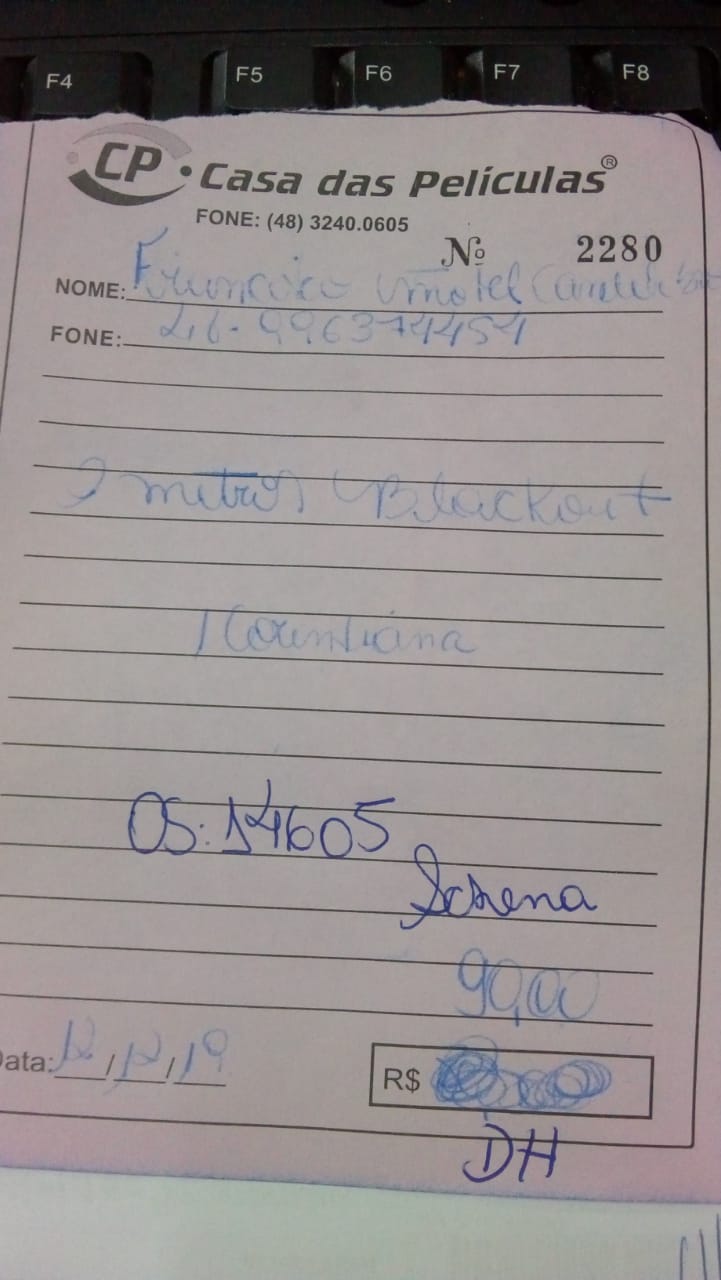 F4 F5 F6 F7 F8
CP • Casa das Películas®
FONE: (48) 3240.0605
Nº 2280
NOME: Francisco
FONE: 46-996374454
2 metros Blackout
1 Corintiana
OS: 14605
90,00
Data: 12/12/19
R$
DH